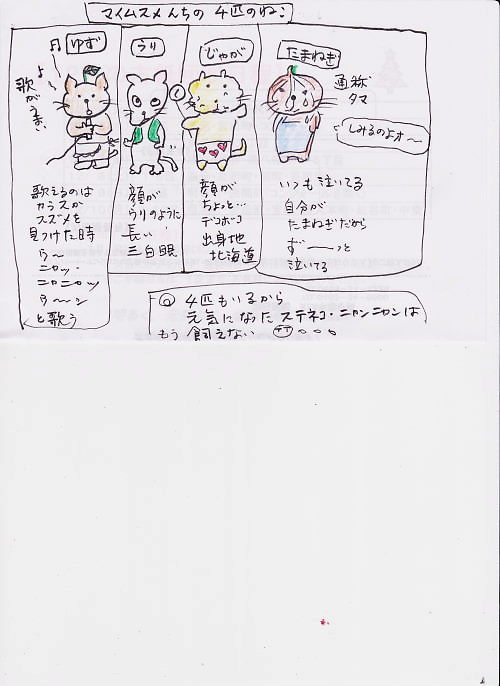 マイムスメんちの 4匹のねこ
ゆず
歌がうまいよ
歌えるのは
カラスか
スズメを
見つけた時
ウ〜
ニャッ・
ニャニャッ
ウ〜ン
と歌う
うり
顔が
ウリのように
長い
三白眼
じゃが
顔が
ちょっと…
デコボコ
出身地
北海道
たまねぎ
通称
タマ
しみるのよォ〜
いつも泣いてる
自分が
たまねぎだから
ず――っと
泣いてる
4匹もいるから
元気になった ステネコ・ニャンニャンは
もう 飼えない